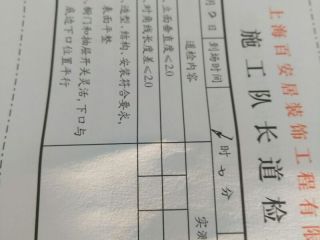 上海百安居装饰工程有限
施工队长道检
月 日 到场时间 时 分
道检内容 实测
立面垂直度≤2.0
对角线长度差≤2.0
造型,结构,安装符合要求,
表面平整
橱门和抽屉开关灵活,下口与
底边下口位置平行